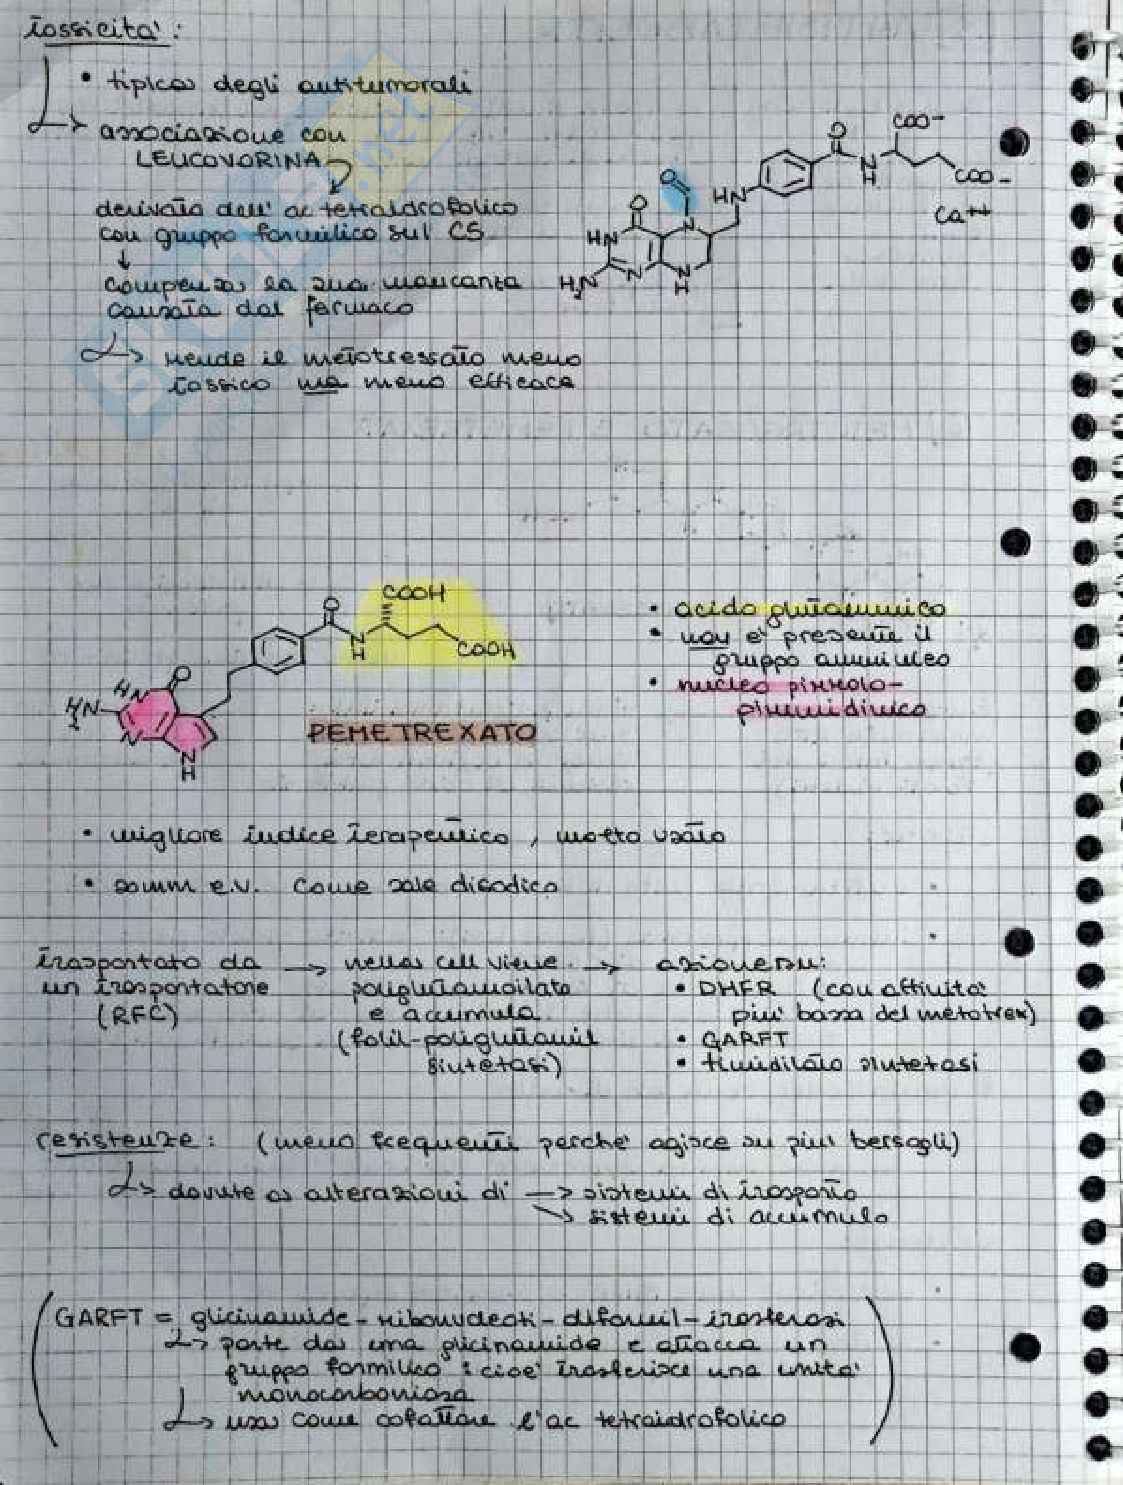 tossicità:
• tipica degli antitumorali
↳ associazione con
LEUCOVORINA
derivato dell' ac tetraidrofolico
con gruppo formilico sul C5
↓
compensa la sua mancanza
causata dal farmaco
↳ rende il metotressato meno
tossico ma meno efficace
O
COO-
N
H
COO-
Ca++
O
HN
O
N
HN
H2N
N
N
H
COOH
O
N
H
COOH
O
HN
H2N
N
N
H
PEMETREXATO
• acido glutammico
• non e' presente il
gruppo amminico
• nucleo pirrolo-
pirimidinico
• migliore indice terapeutico, molto usato
• somm e.v. come sale disodico
trasportato da → nella cell viene → azione su:
un trasportatore poliglutamilato • DHFR (con affinità
(RFC) e accumula più bassa del metotrex)
(folil-poliglutamil • GARFT
sintetasi) • timidilato sintetasi
resistenze: (meno frequenti perché agisce su più bersagli)
↳ dovute a alterazioni di → sistemi di trasporto
↘ sistemi di accumulo
(GARFT = glicinamide-ribonucleoti-diformil-trasferasi
↳ parte da una glicinamide e attacca un
gruppo formilico: cioè trasferisce una unità
monocarboniosa
↳ usa come cofattore l'ac tetraidrofolico)